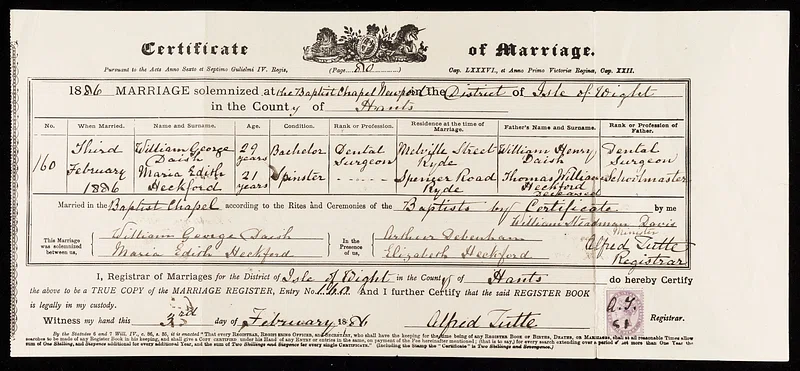 Certificate of Marriage.
Pursuant to the Acts Anno Sexto et Septimo Gulielmi IV. Regis, (Page 80) Cap. LXXXVI., et Anno Primo Victoriæ Reginæ, Cap. XXII.
1886 MARRIAGE solemnized at the Baptist Chapel Newport in the District of Isle of Wight
in the County of Hants
No. When Married. Name and Surname. Age. Condition. Rank or Profession. Residence at the time of Marriage. Father's Name and Surname. Rank or Profession of Father.
160 Third February 1886
William George Daish 29 years Bachelor Dental Surgeon Melville Street Ryde William Henry Daish Dental Surgeon
Maria Edith Heckford 21 years Spinster Spencer Road Ryde Thomas William Heckford deceased Schoolmaster
Married in the Baptist Chapel according to the Rites and Ceremonies of the Baptists by Certificate by me
William Steadman Davis
Minister
This Marriage was solemnized between us, William George Daish Maria Edith Heckford In the Presence of us, Arthur Debenham Elizabeth Heckford
Alfred Tutte
Registrar
I, Registrar of Marriages for the District of Isle of Wight in the County of Hants do hereby Certify
the above to be a TRUE COPY of the MARRIAGE REGISTER, Entry No. 160 And I further Certify that the said REGISTER BOOK
is legally in my custody.
Witness my hand this 3rd day of February 1886 Alfred Tutte Registrar.
A.T.
By the Statute 6 and 7 Will. IV., c. 86, s. 35, it is enacted "That every REGISTRAR, REGISTERING OFFICER, and SECRETARY, who shall have the keeping for the time being of any REGISTER BOOK OF BIRTHS, DEATHS, OR MARRIAGES, shall at all reasonable Times allow
searches to be made of any Register Book in his keeping, and shall give a COPY certified under his Hand of any ENTRY or ENTRIES in the same, on payment of the Fee hereinafter mentioned; (that is to say,) for every search extending over a period not more than One Year the
sum of One Shilling, and Sixpence additional for every additional Year, and the Sum of Two Shillings and Sixpence for every single CERTIFICATE." (Including the Stamp the "Certificate" is Two Shillings and Sevenpence.)